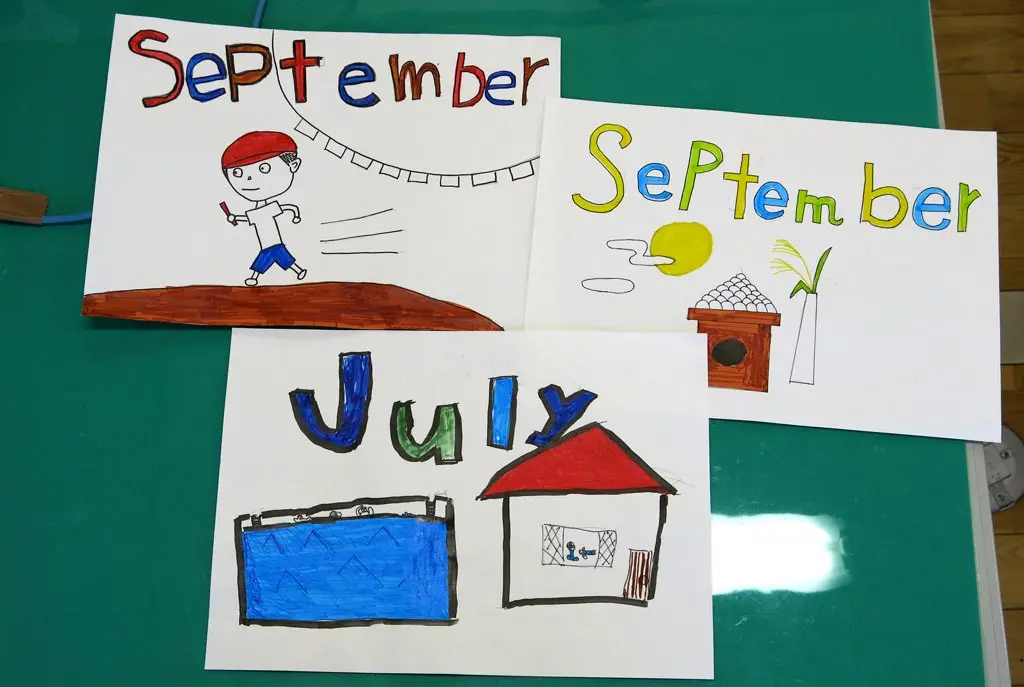 September
September
July